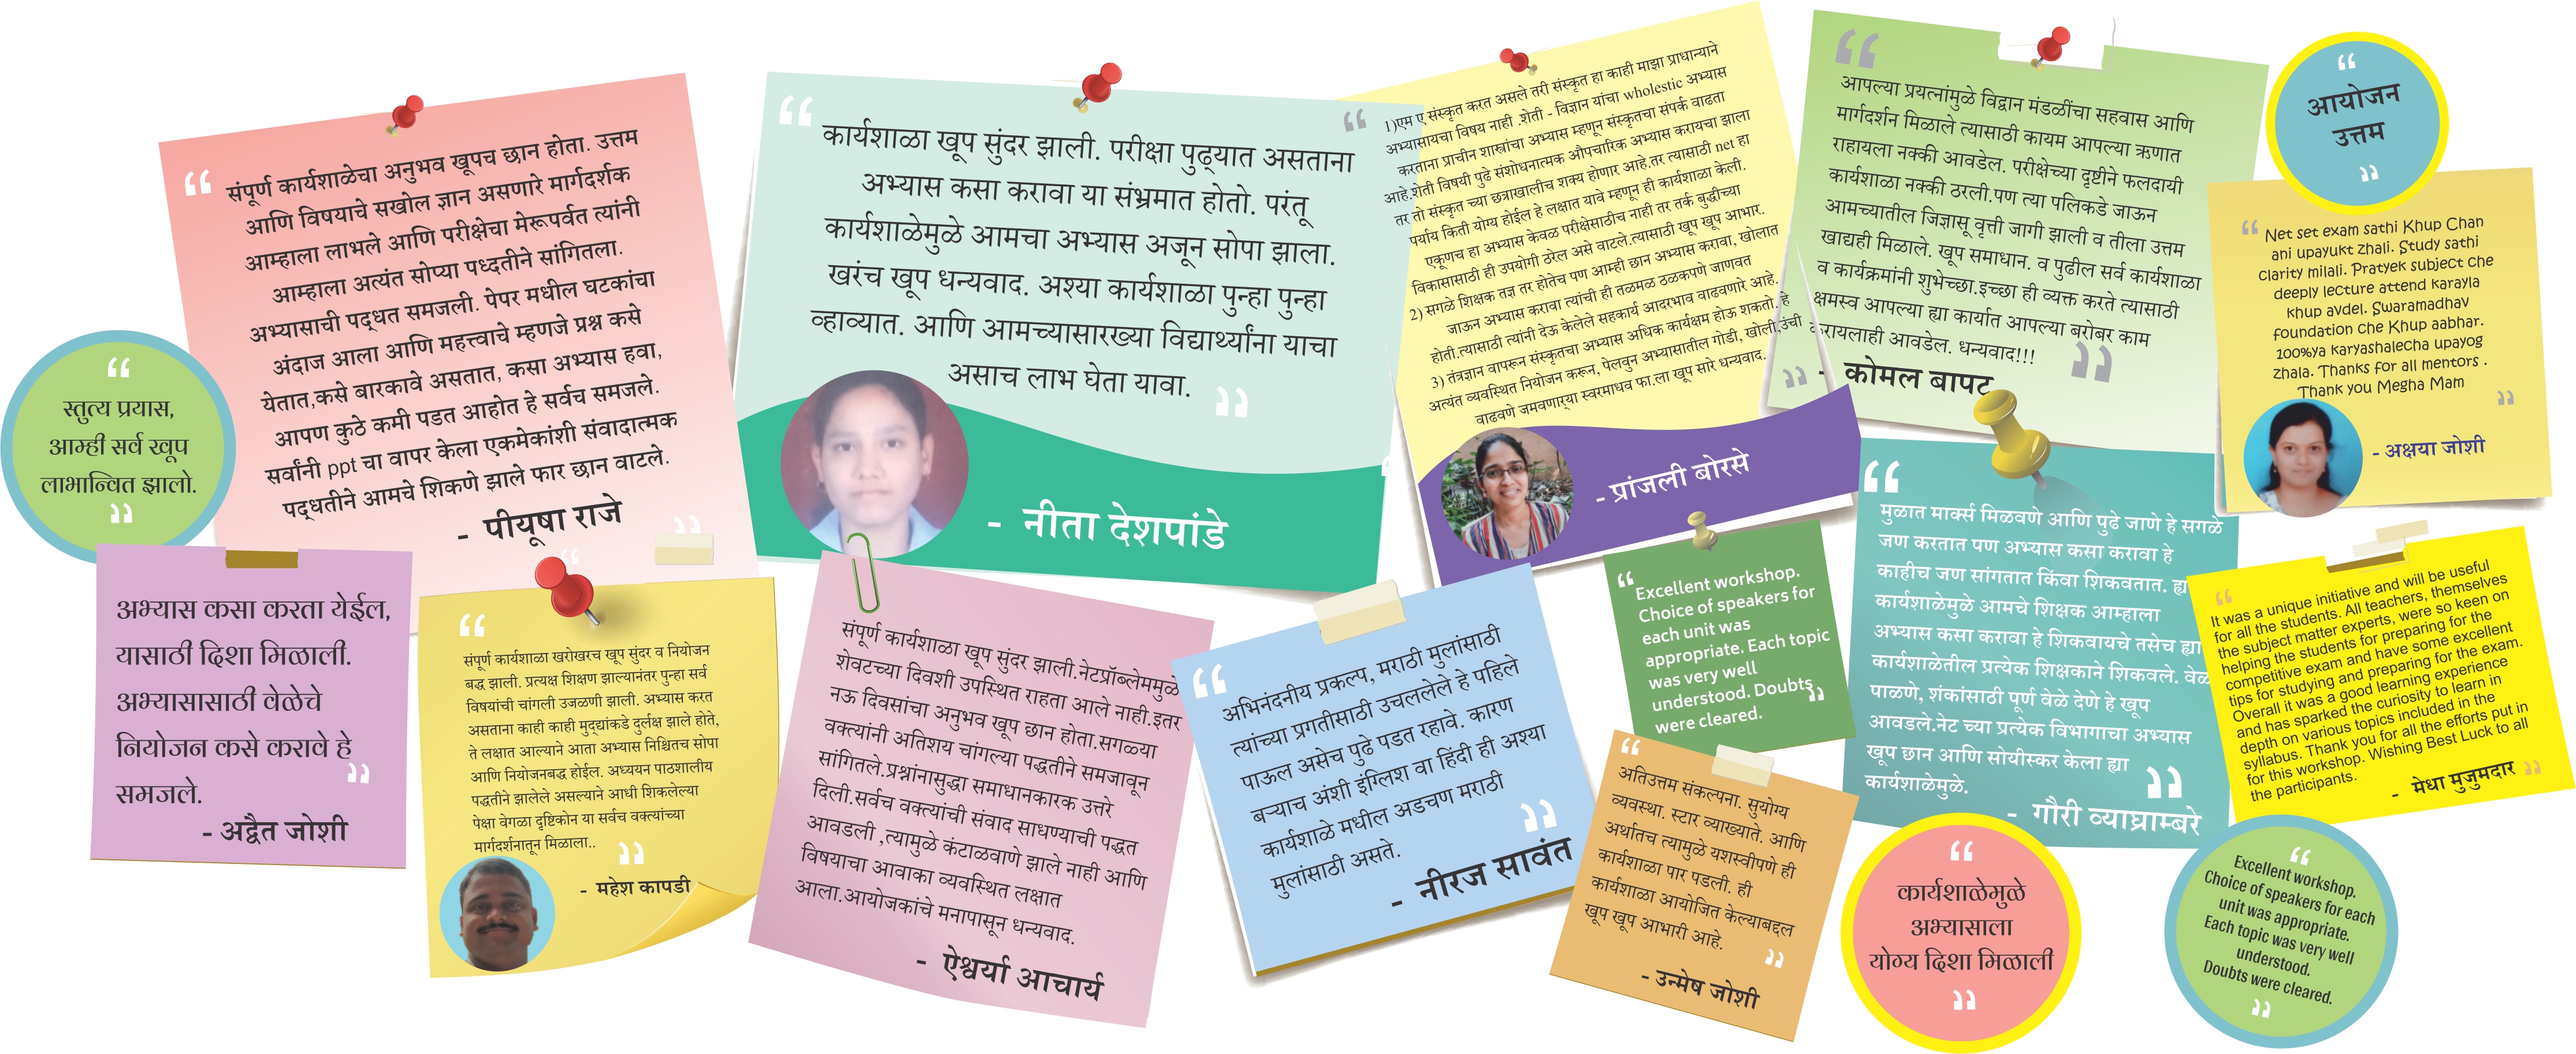 स्तुत्य प्रयास,
आम्ही सर्व खूप
लाभान्वित झालो.
संपूर्ण कार्यशाळेचा अनुभव खूपच छान होता. उत्तम
आणि विषयाचे सखोल ज्ञान असणारे मार्गदर्शक
आम्हाला लाभले आणि परीक्षेचा मेरूपर्वत त्यांनी
आम्हाला अत्यंत सोप्या पध्दतीने सांगितला.
अभ्यासाची पद्धत समजली. पेपर मधील घटकांचा
अंदाज आला आणि महत्त्वाचे म्हणजे प्रश्न कसे
येतात,कसे बारकावे असतात, कसा अभ्यास हवा,
आपण कुठे कमी पडत आहोत हे सर्वच समजले.
सर्वांनी ppt चा वापर केला एकमेकांशी संवादात्मक
पद्धतीने आमचे शिकणे झाले फार छान वाटले.
- पीयूषा राजे
कार्यशाळा खूप सुंदर झाली. परीक्षा पुढ्यात असताना
अभ्यास कसा करावा या संभ्रमात होतो. परंतू
कार्यशाळेमुळे आमचा अभ्यास अजून सोपा झाला.
खरंच खूप धन्यवाद. अश्या कार्यशाळा पुन्हा पुन्हा
व्हाव्यात. आणि आमच्यासारख्या विद्यार्थ्यांना याचा
असाच लाभ घेता यावा.
- नीता देशपांडे
1)एम ए संस्कृत करत असले तरी संस्कृत हा काही माझा प्राधान्याने
अभ्यासायचा विषय नाही .शेती - विज्ञान यांचा wholestic अभ्यास
करताना प्राचीन शास्त्रांचा अभ्यास म्हणून संस्कृतचा संपर्क वाढता
आहे.शेती विषयी पुढे संशोधनात्मक औपचारिक अभ्यास करायचा झाला
तर तो संस्कृत च्या छत्राखालीच शक्य होणार आहे.तर त्यासाठी net हा
पर्याय किती योग्य होईल हे लक्षात यावे म्हणून ही कार्यशाळा केली.
एकूणच हा अभ्यास केवळ परीक्षेसाठीच नाही तर तर्क बुद्धीच्या
विकासासाठी ही उपयोगी ठरेल असे वाटले.त्यासाठी खूप खूप आभार.
2) सगळे शिक्षक तज्ञ तर होतेच पण आम्ही छान अभ्यास करावा, खोलात
जाऊन अभ्यास करावा त्यांची ही तळमळ ठळकपणे जाणवत
होती.त्यासाठी त्यांनी देऊ केलेले सहकार्य आदरभाव वाढवणारे आहे.
3) तंत्रज्ञान वापरून संस्कृतचा अभ्यास अधिक कार्यक्षम होऊ शकतो. हे
अत्यंत व्यवस्थित नियोजन करून, पेलवुन अभ्यासातील गोडी, खोली,उंची
वाढवणे जमवणाऱ्या स्वरमाधव फा.ला खूप सारे धन्यवाद.
- प्रांजली बोरसे
आपल्या प्रयत्नांमुळे विद्वान मंडळींचा सहवास आणि
मार्गदर्शन मिळाले त्यासाठी कायम आपल्या ऋणात
राहायला नक्की आवडेल. परीक्षेच्या दृष्टीने फलदायी
कार्यशाळा नक्की ठरली.पण त्या पलिकडे जाऊन
आमच्यातील जिज्ञासू वृत्ती जागी झाली व तीला उत्तम
खाद्यही मिळाले. खूप समाधान. व पुढील सर्व कार्यशाळा
व कार्यक्रमांनी शुभेच्छा.इच्छा ही व्यक्त करते त्यासाठी
क्षमस्व आपल्या ह्या कार्यात आपल्या बरोबर काम
करायलाही आवडेल. धन्यवाद!!!
- कोमल बापट
आयोजन
उत्तम
Net set exam sathi Khup Chan
ani upayukt zhali. Study sathi
clarity milali. Pratyek subject che
deeply lecture attend karayla
khup avdel. Swaramadhav
foundation che Khup aabhar.
100%ya karyashalecha upayog
zhala. Thanks for all mentors .
Thank you Megha Mam
- अक्षया जोशी
अभ्यास कसा करता येईल,
यासाठी दिशा मिळाली.
अभ्यासासाठी वेळेचे
नियोजन कसे करावे हे
समजले.
- अद्वैत जोशी
संपूर्ण कार्यशाळा खरोखरच खूप सुंदर व नियोजन
बद्ध झाली. प्रत्यक्ष शिक्षण झाल्यानंतर पुन्हा सर्व
विषयांची चांगली उजळणी झाली. अभ्यास करत
असताना काही काही मुद्द्यांकडे दुर्लक्ष झाले होते,
ते लक्षात आल्याने आता अभ्यास निश्चितच सोपा
आणि नियोजनबद्ध होईल. अध्ययन पाठशालीय
पद्धतीने झालेले असल्याने आधी शिकलेल्या
पेक्षा वेगळा दृष्टिकोन या सर्वच वक्त्यांच्या
मार्गदर्शनातून मिळाला..
- महेश कापडी
संपूर्ण कार्यशाळा खूप सुंदर झाली.नेटप्रॉब्लेममुळे
शेवटच्या दिवशी उपस्थित राहता आले नाही.इतर
नऊ दिवसांचा अनुभव खूप छान होता.सगळ्या
वक्त्यांनी अतिशय चांगल्या पद्धतीने समजावून
सांगितले.प्रश्नांनासुद्धा समाधानकारक उत्तरे
दिली.सर्वच वक्त्यांची संवाद साधण्याची पद्धत
आवडली ,त्यामुळे कंटाळवाणे झाले नाही आणि
विषयाचा आवाका व्यवस्थित लक्षात
आला.आयोजकांचे मनापासून धन्यवाद.
- ऐश्वर्या आचार्य
अभिनंदनीय प्रकल्प, मराठी मुलांसाठी
त्यांच्या प्रगतीसाठी उचललेले हे पहिले
पाऊल असेच पुढे पडत रहावे. कारण
बऱ्याच अंशी इंग्लिश वा हिंदी ही अश्या
कार्यशाळे मधील अडचण मराठी
मुलांसाठी असते.
- नीरज सावंत
Excellent workshop.
Choice of speakers for
each unit was
appropriate. Each topic
was very well
understood. Doubts
were cleared.
अतिउत्तम संकल्पना. सुयोग्य
व्यवस्था. स्टार व्याख्याते. आणि
अर्थातच त्यामुळे यशस्वीपणे ही
कार्यशाळा पार पडली. ही
कार्यशाळा आयोजित केल्याबद्दल
खूप खूप आभारी आहे.
- उन्मेष जोशी
मुळात मार्क्स मिळवणे आणि पुढे जाणे हे सगळे
जण करतात पण अभ्यास कसा करावा हे
काहीच जण सांगतात किंवा शिकवतात. ह्या
कार्यशाळेमुळे आमचे शिक्षक आम्हाला
अभ्यास कसा करावा हे शिकवायचे तसेच ह्या
कार्यशाळेतील प्रत्येक शिक्षकाने शिकवले. वेळ
पाळणे, शंकांसाठी पूर्ण वेळे देणे हे खूप
आवडले.नेट च्या प्रत्येक विभागाचा अभ्यास
खूप छान आणि सोयीस्कर केला ह्या
कार्यशाळेमुळे.
- गौरी व्याघ्राम्बरे
It was a unique initiative and will be useful
for all the students. All teachers, themselves
the subject matter experts, were so keen on
helping the students for preparing for the
competitive exam and have some excellent
tips for studying and preparing for the exam.
Overall it was a good learning experience
and has sparked the curiosity to learn in
depth on various topics included in the
syllabus. Thank you for all the efforts put in
for this workshop. Wishing Best Luck to all
the participants.
- मेधा मुजुमदार
कार्यशाळेमुळे
अभ्यासाला
योग्य दिशा मिळाली
Excellent workshop.
Choice of speakers for each
unit was appropriate.
Each topic was very well
understood.
Doubts were cleared.